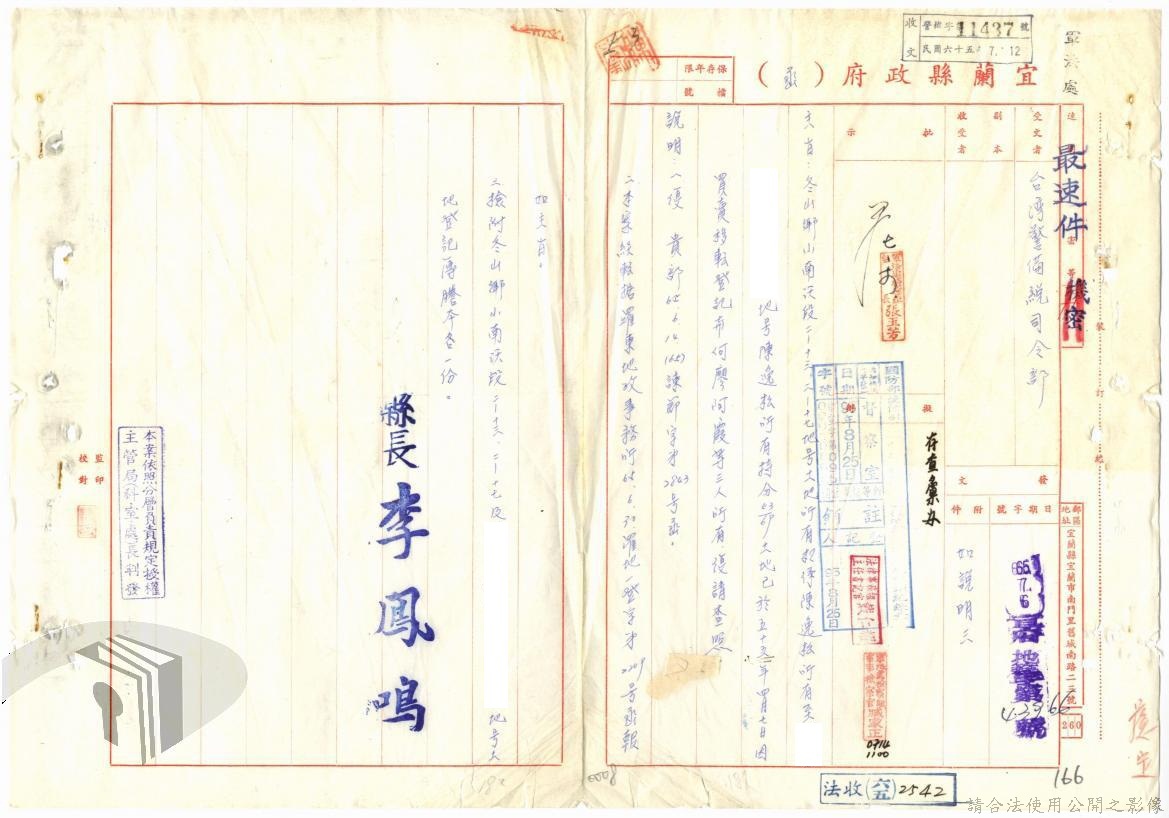 收文
警檢字 11437 號
民國六十五年 7. 12
軍法處
保存年限
檔號
宜蘭縣政府（函）
速
最速件
密等
機密
受文者
台灣警備總司令部
副本收受者
批示
擬辦
存查彙办
張玉芳
國防部
督察室註記
日期
8月25日
字號
發文
日期
字號
附件
65. 7. 6
42966
如說明三
郵區
地址
宜蘭縣宜蘭市南門里舊城南路二三號
260
主旨：冬山鄉小南澳段二－十三、二－十七地号土地所有权係陳逸松所有至
地号陳逸松所有持分 土地已於五十五年四月七日因
買賣移転登記布何廖阿霞等三人所有復請查照
說明：一、復 貴部65.6.14(65)諫節字第2863号函。
二、本案经転據羅東地政事務所65.6.30羅地一登字第2209号函報
如主旨。
三、檢附冬山鄉小南澳段二－十三、二－十七及 地号土
地登記簿謄本各一份。
縣長 李鳳鳴
本案依照分層負責規定授權
主管局科室處長判發
監印
校對
裝
訂
線
0714
1100
法收(六五)2542
166
請合法使用公開之影像